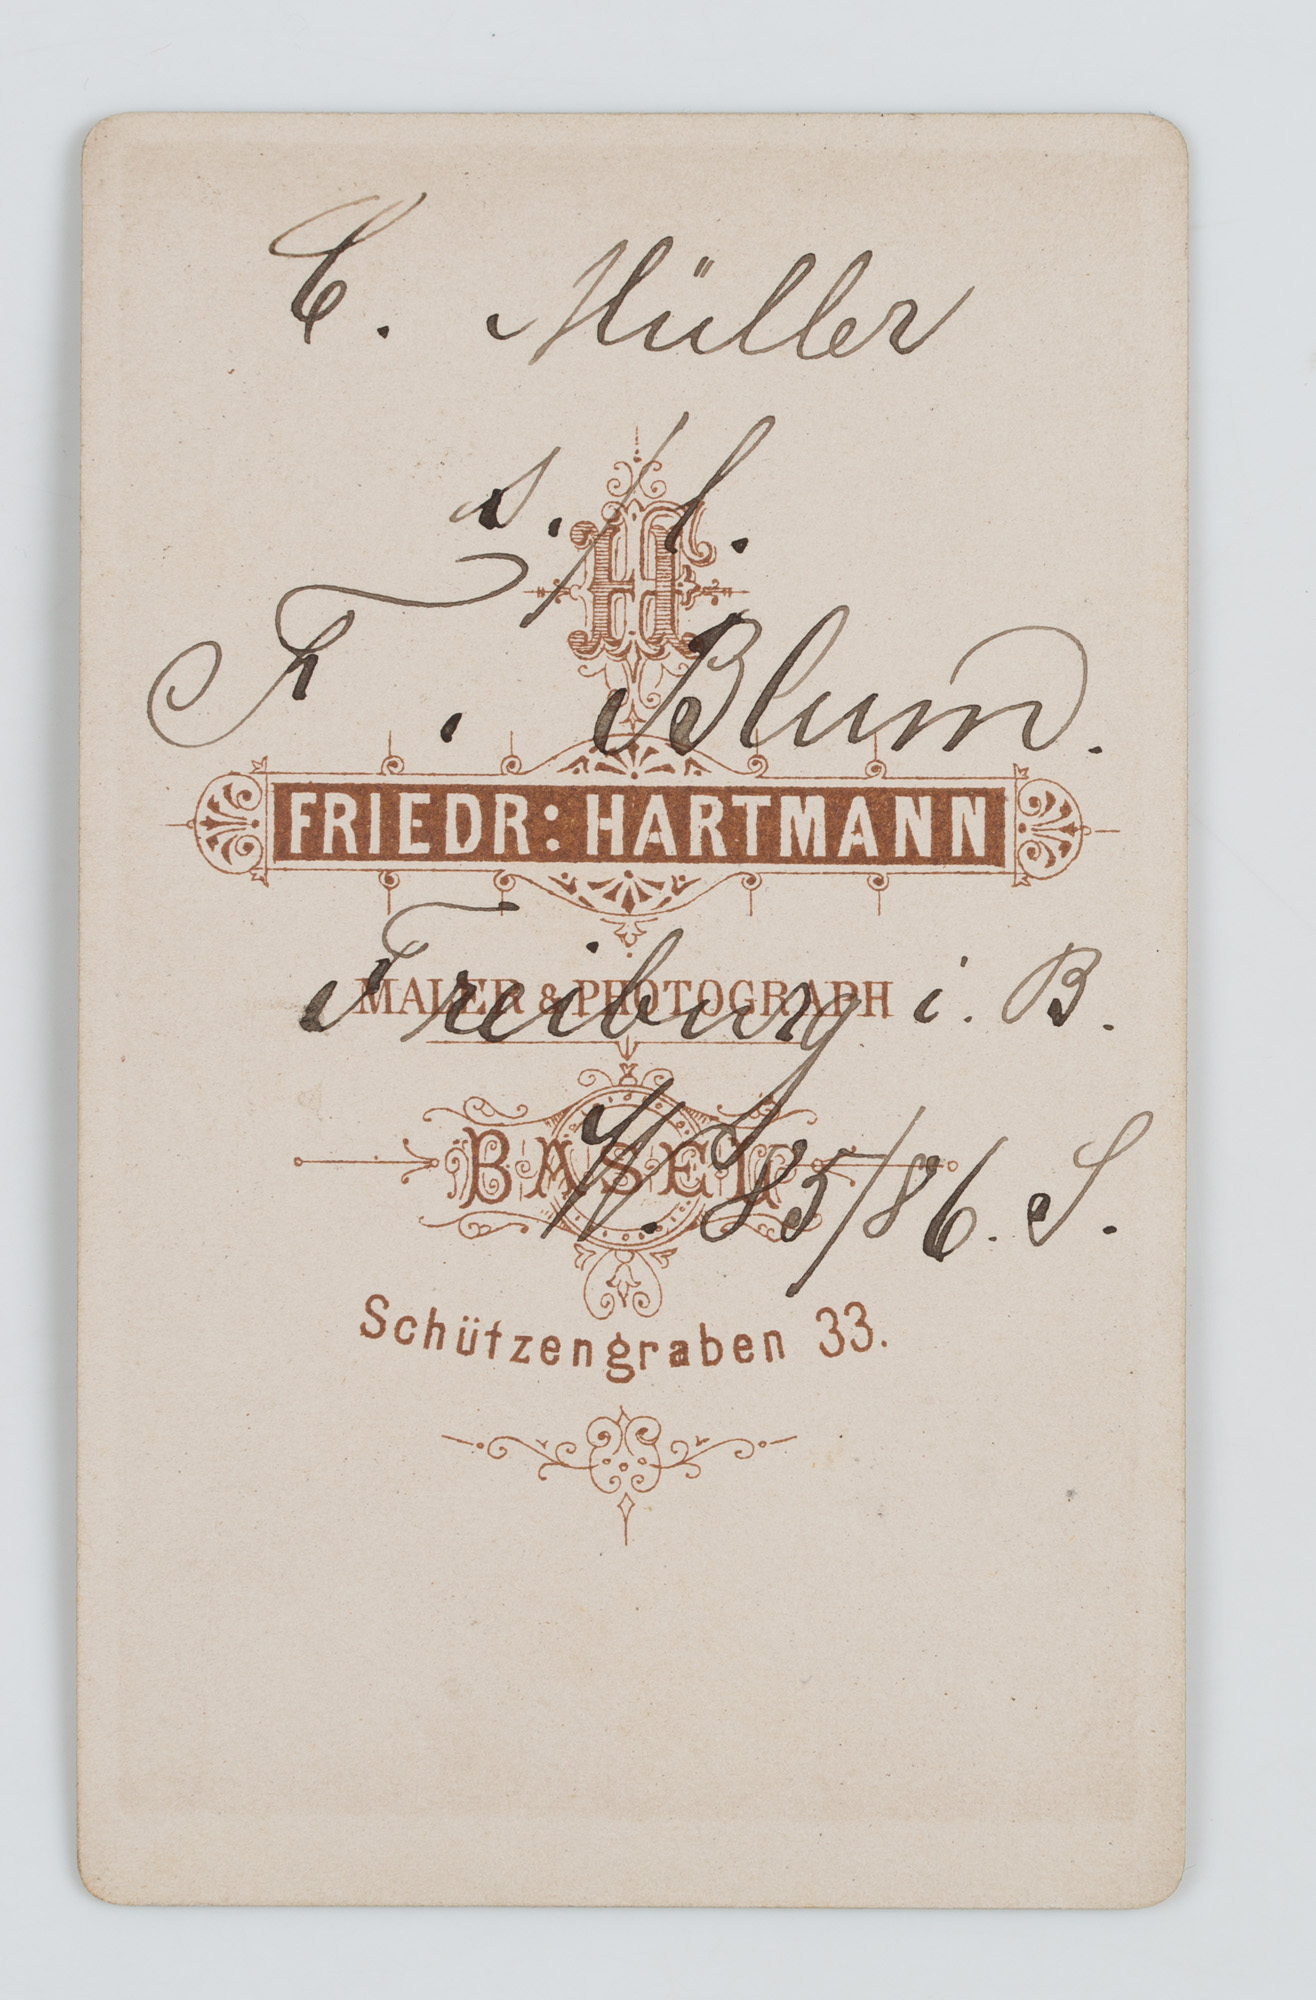 C. Müller
s./l.
F. Blum.
H
FRIEDR: HARTMANN
Freiburg i. B.
MALER & PHOTOGRAPH
W. 85/86. S.
BASEL
Schützengraben 33.